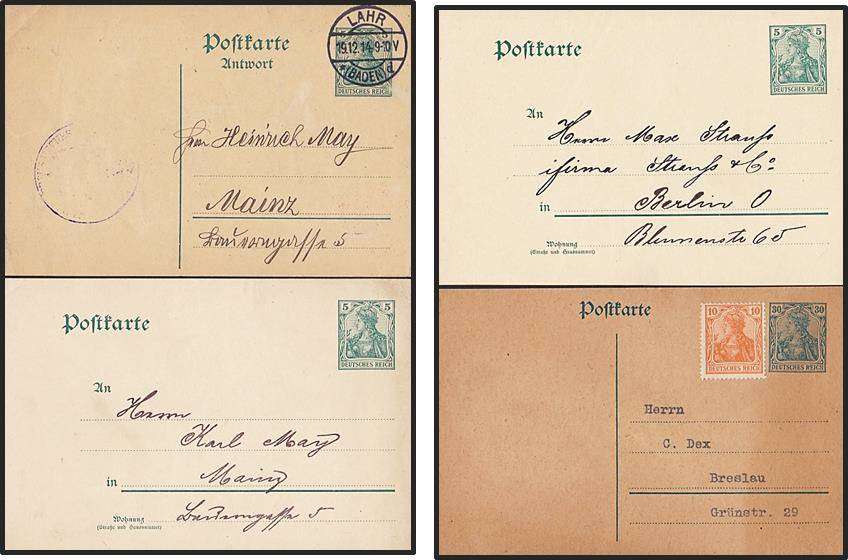 Postkarte
Antwort
LAHR
19.12.14.9-10V
*(BADEN)d
DEUTSCHES REICH
Herrn Heinrich May
Mainz
5
Postkarte
5 5
DEUTSCHES REICH
An
Herrn
Karl May
in Mainz
Wohnung
(Straße und Hausnummer)
5
Postkarte
5 5
DEUTSCHES REICH
An
Herrn Max Strauss
ifirma Strauss & Co
in Berlin O
Wohnung
(Straße und Hausnummer)
Blumenstr 65
Postkarte
10 10
DEUTSCHES REICH
30 30
DEUTSCHES REICH
Herrn
C. Dex
Breslau
Grünstr. 29